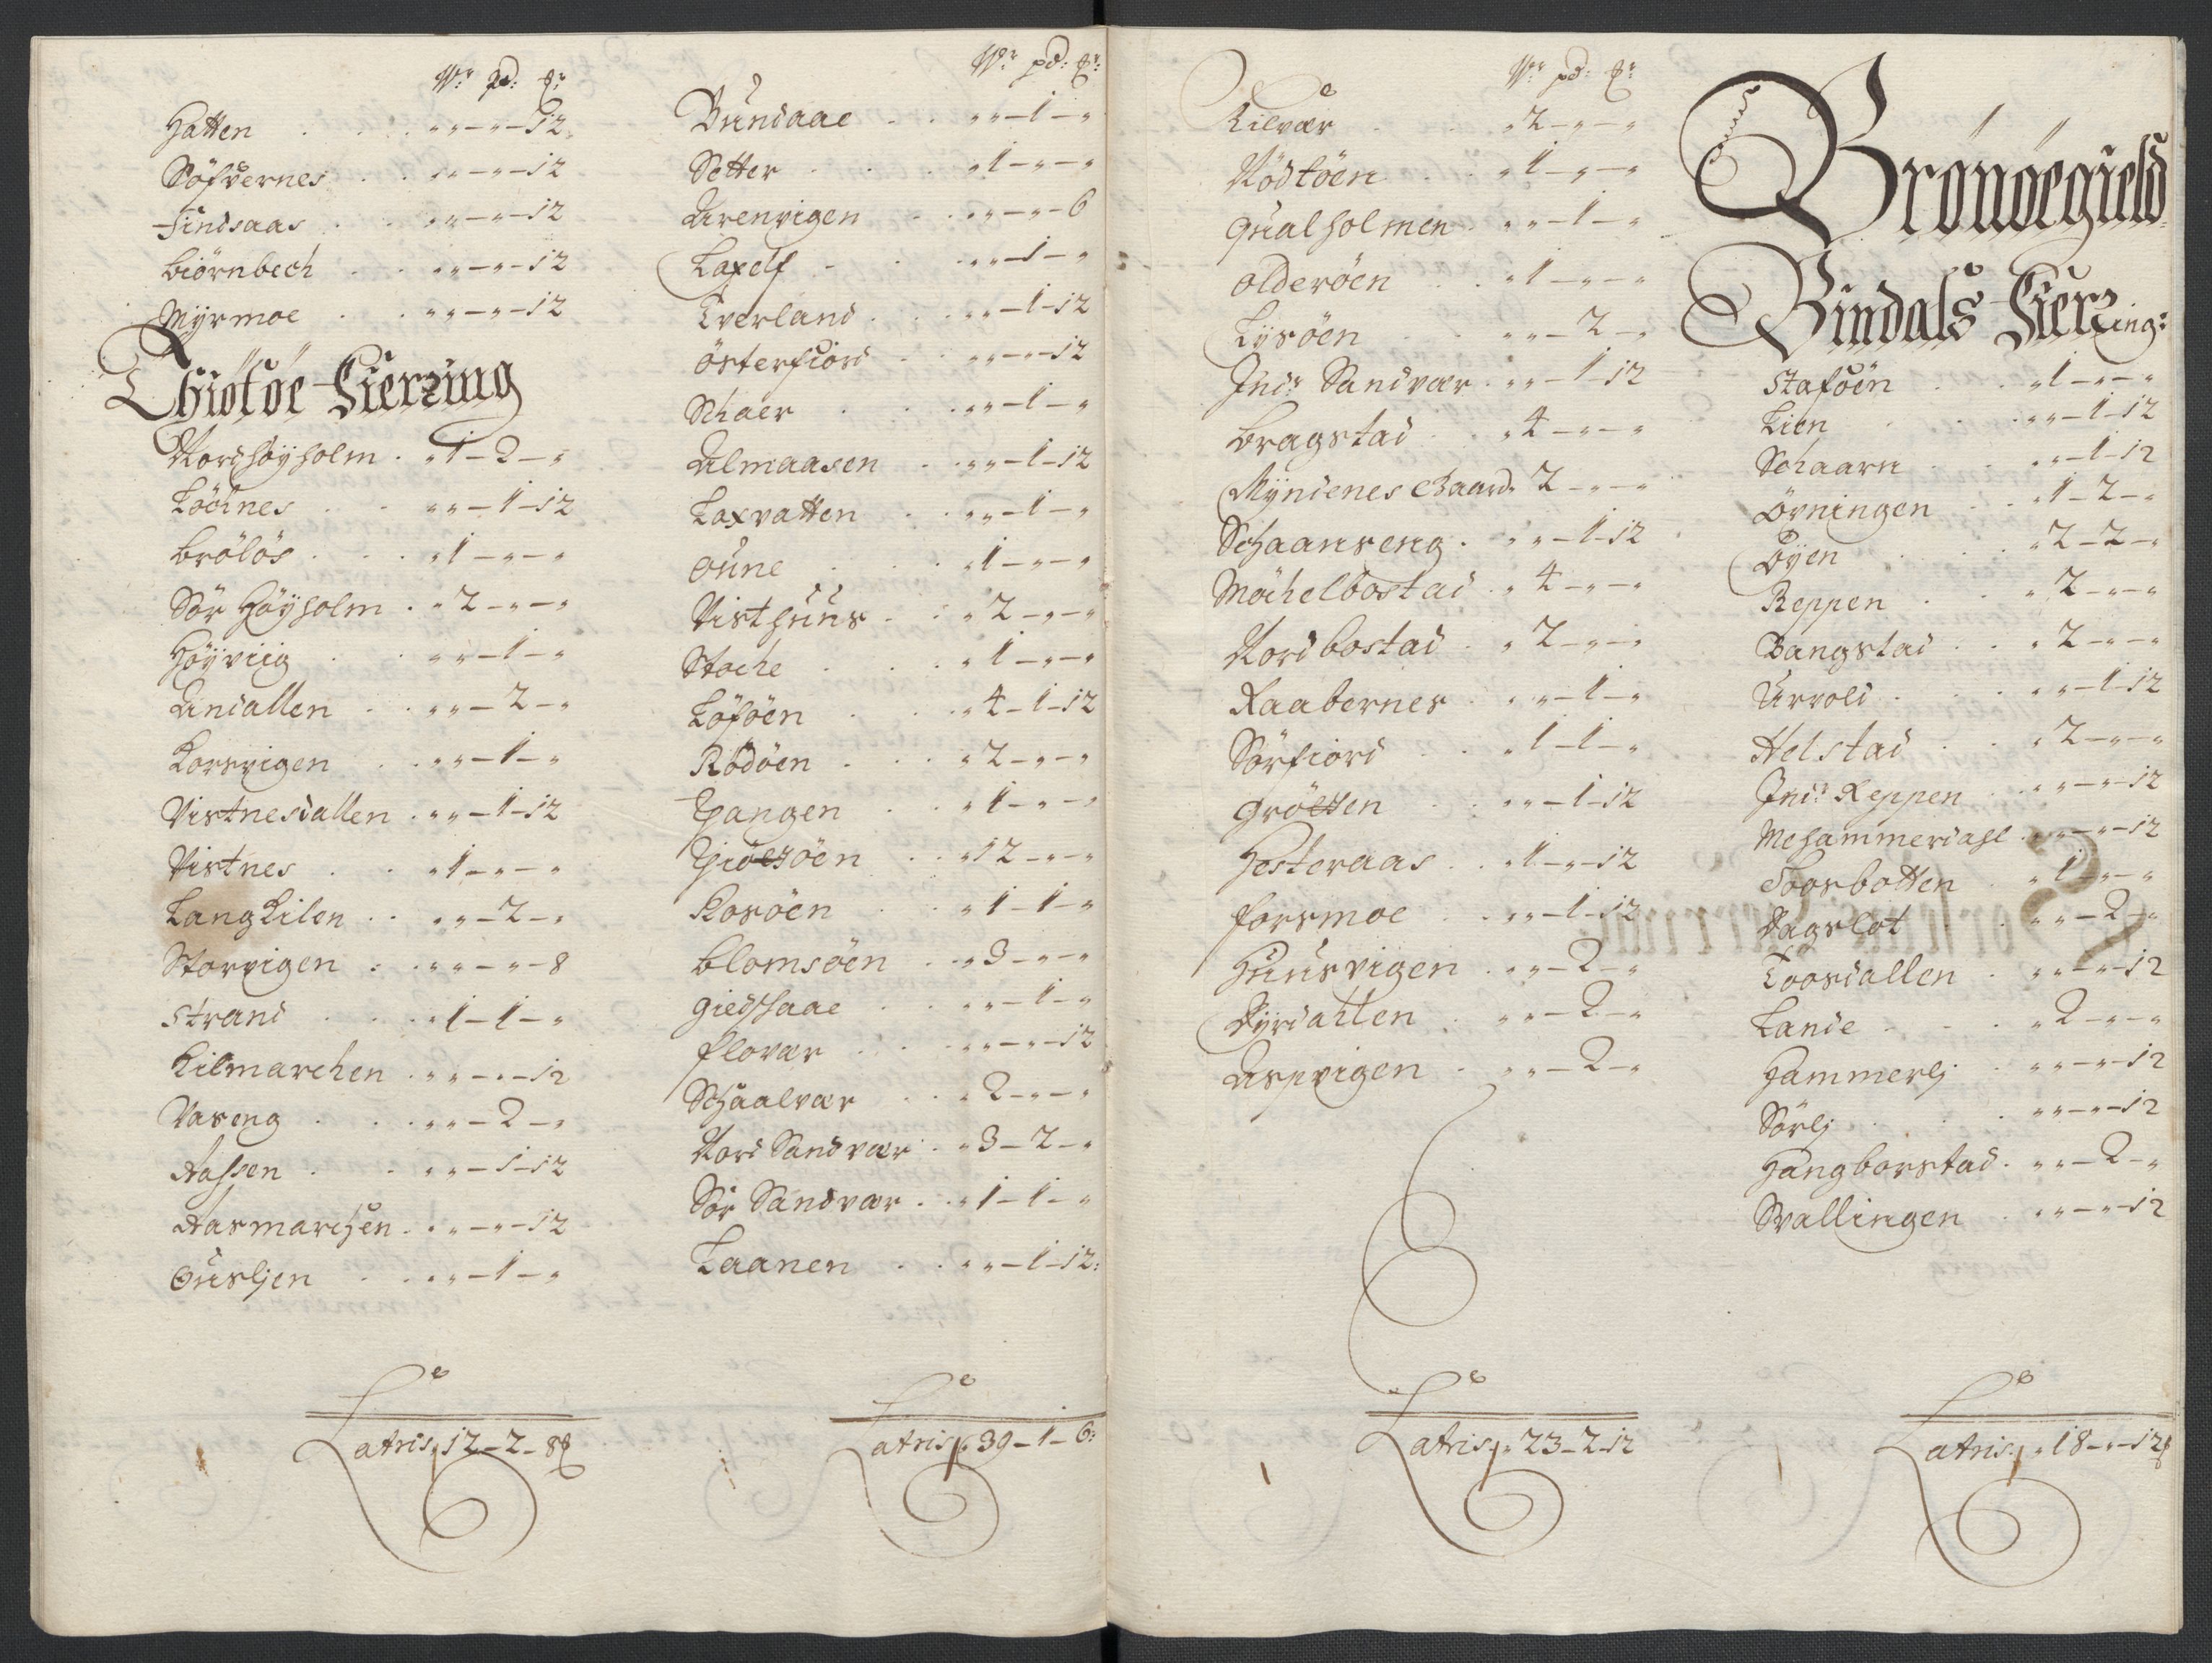 Wr pd: ℔r
Hatten . . . „ „ – „ – 12
Söfvernes . . „ „ – „ – 12
Tindsaas . . „ „ – „ – 12
Biörnbech . . „ „ – „ – 12
Myrmoe . . „ „ – „ – 12
Thiötöe Fierzing
Nordhöyholm . „ 1 – 2 – „
Lööhnes . . „ „ – 1 – 12
Brölös . . . „ 1 – „ – „
Sör Höyholm . „ 2 – „ – „
Höyviig . . „ „ – 1 – „
Andallen . . „ „ – 2 – „
Korsvigen . . „ „ – 1 – „
Vistnesdallen . „ „ – 1 – 12
Vistnes . . „ 1 – „ – „
Langkilen . . „ „ – 2 – „
Storvigen . . „ „ – „ – 8
Strand . . . „ 1 – 1 – „
Kilmarchen . „ „ – „ – 12
Vaseng . . . „ „ – 2 – „
Aassen . . „ „ – 1 – 12
Aasmarchen . „ „ – „ – 12
Gusljen . . „ „ – 1 – „
Latris 12 – 2 – 8 ℔
Wr pd: ℔r:
Bundaae . . „ „ – 1 – „
Setter . . . „ 1 – „ – „
Arenvigen . . „ „ – „ – 6
Laxelf . . „ „ – 1 – „
Everland . . „ „ – 1 – 12
Österfiord . . „ „ – „ – 12
Schaer . . . „ „ – 1 – „
Almaasen . . „ „ – 1 – 12
Laxvatten . . „ „ – 1 – „
Oune . . . „ 1 – „ – „
Visthuus . . „ 2 – „ – „
Stoche . . . „ 1 – „ – „
Löföen . . „ 4 – 1 – 12
Rödöen . . . „ 2 – „ – „
Tangen . . „ 1 – „ – „
Tiöetöen . . „ 12 – „ – „
Rosöen . . „ 1 – 1 – „
Blomsöen . . „ 3 – „ – „
Giedshaae . . „ „ – 1 – „
Flovær . . . „ „ – „ – 12
Schaalvær . . „ 2 – „ – „
Nord Sandvær . „ 3 – 2 – „
Sör Sandvær . „ 1 – 1 – „
Laanen . . „ „ – 1 – 12:
Latris „ 39 – 1 – 6:
Wr pd: ℔r
Kilvær . . „ 2 – „ – „
Rödtöen . . „ 1 – „ – „
Qualholmen . „ „ – 1 – „
Olderöen . . „ 1 – „ – „
Lysöen . . „ „ – 2 – „
Indr Sandvær . „ „ – 1 – 12
Bragstad . . „ 4 – „ – „
Myndenes Gaard „ 2 – „ – „
Schaanseng . „ „ – 1 – 12
Möchelbostad . „ 4 – „ – „
Nordbostad . „ 2 – „ – „
Raabernes . „ „ – 1 – „
Sörfiord . . „ 1 – 1 – „
Gröetten . . „ „ – 1 – 12
Hesteraas . . „ 1 – „ – 12
Forsmoe . . „ „ – 1 – 12
Huusvigen . „ „ – 2 – „
Dyrdahlen . „ „ – 2 – „
Aspvigen . „ „ – 2 – „
Latris „ 23 – 2 – 12
Brönöegield
Bindals Fierzing:
Staföen . . „ 1 – „ – „
Lien . . „ „ – 1 – 12
Schaarn . . „ „ – 1 – 12
Övningen . . „ 1 – 2 – „
Byen . . „ 2 – 2 – „
Reppen . . „ 2 – „ – „
Bangstad . . „ 2 – „ – „
Urvold . . „ „ – 1 – 12
Helstad . . „ 2 – „ – „
Indr Reppen . „ „ – „ – 12
Mehammerdahl . „ „ – „ – 12
Toosbotten . „ 1 – „ – „
Dagslot . „ „ – 2 – „
Toosdallen . „ „ – „ – 12
Lande . . . „ 2 – „ – „
Hammerlj . „ „ – „ – 12
Sörlj . . „ „ – „ – 12
Hangborstad . „ „ – 2 – „
Svallingen . „ „ – „ – 12
Latris „ 18 – „ – 12 ℔